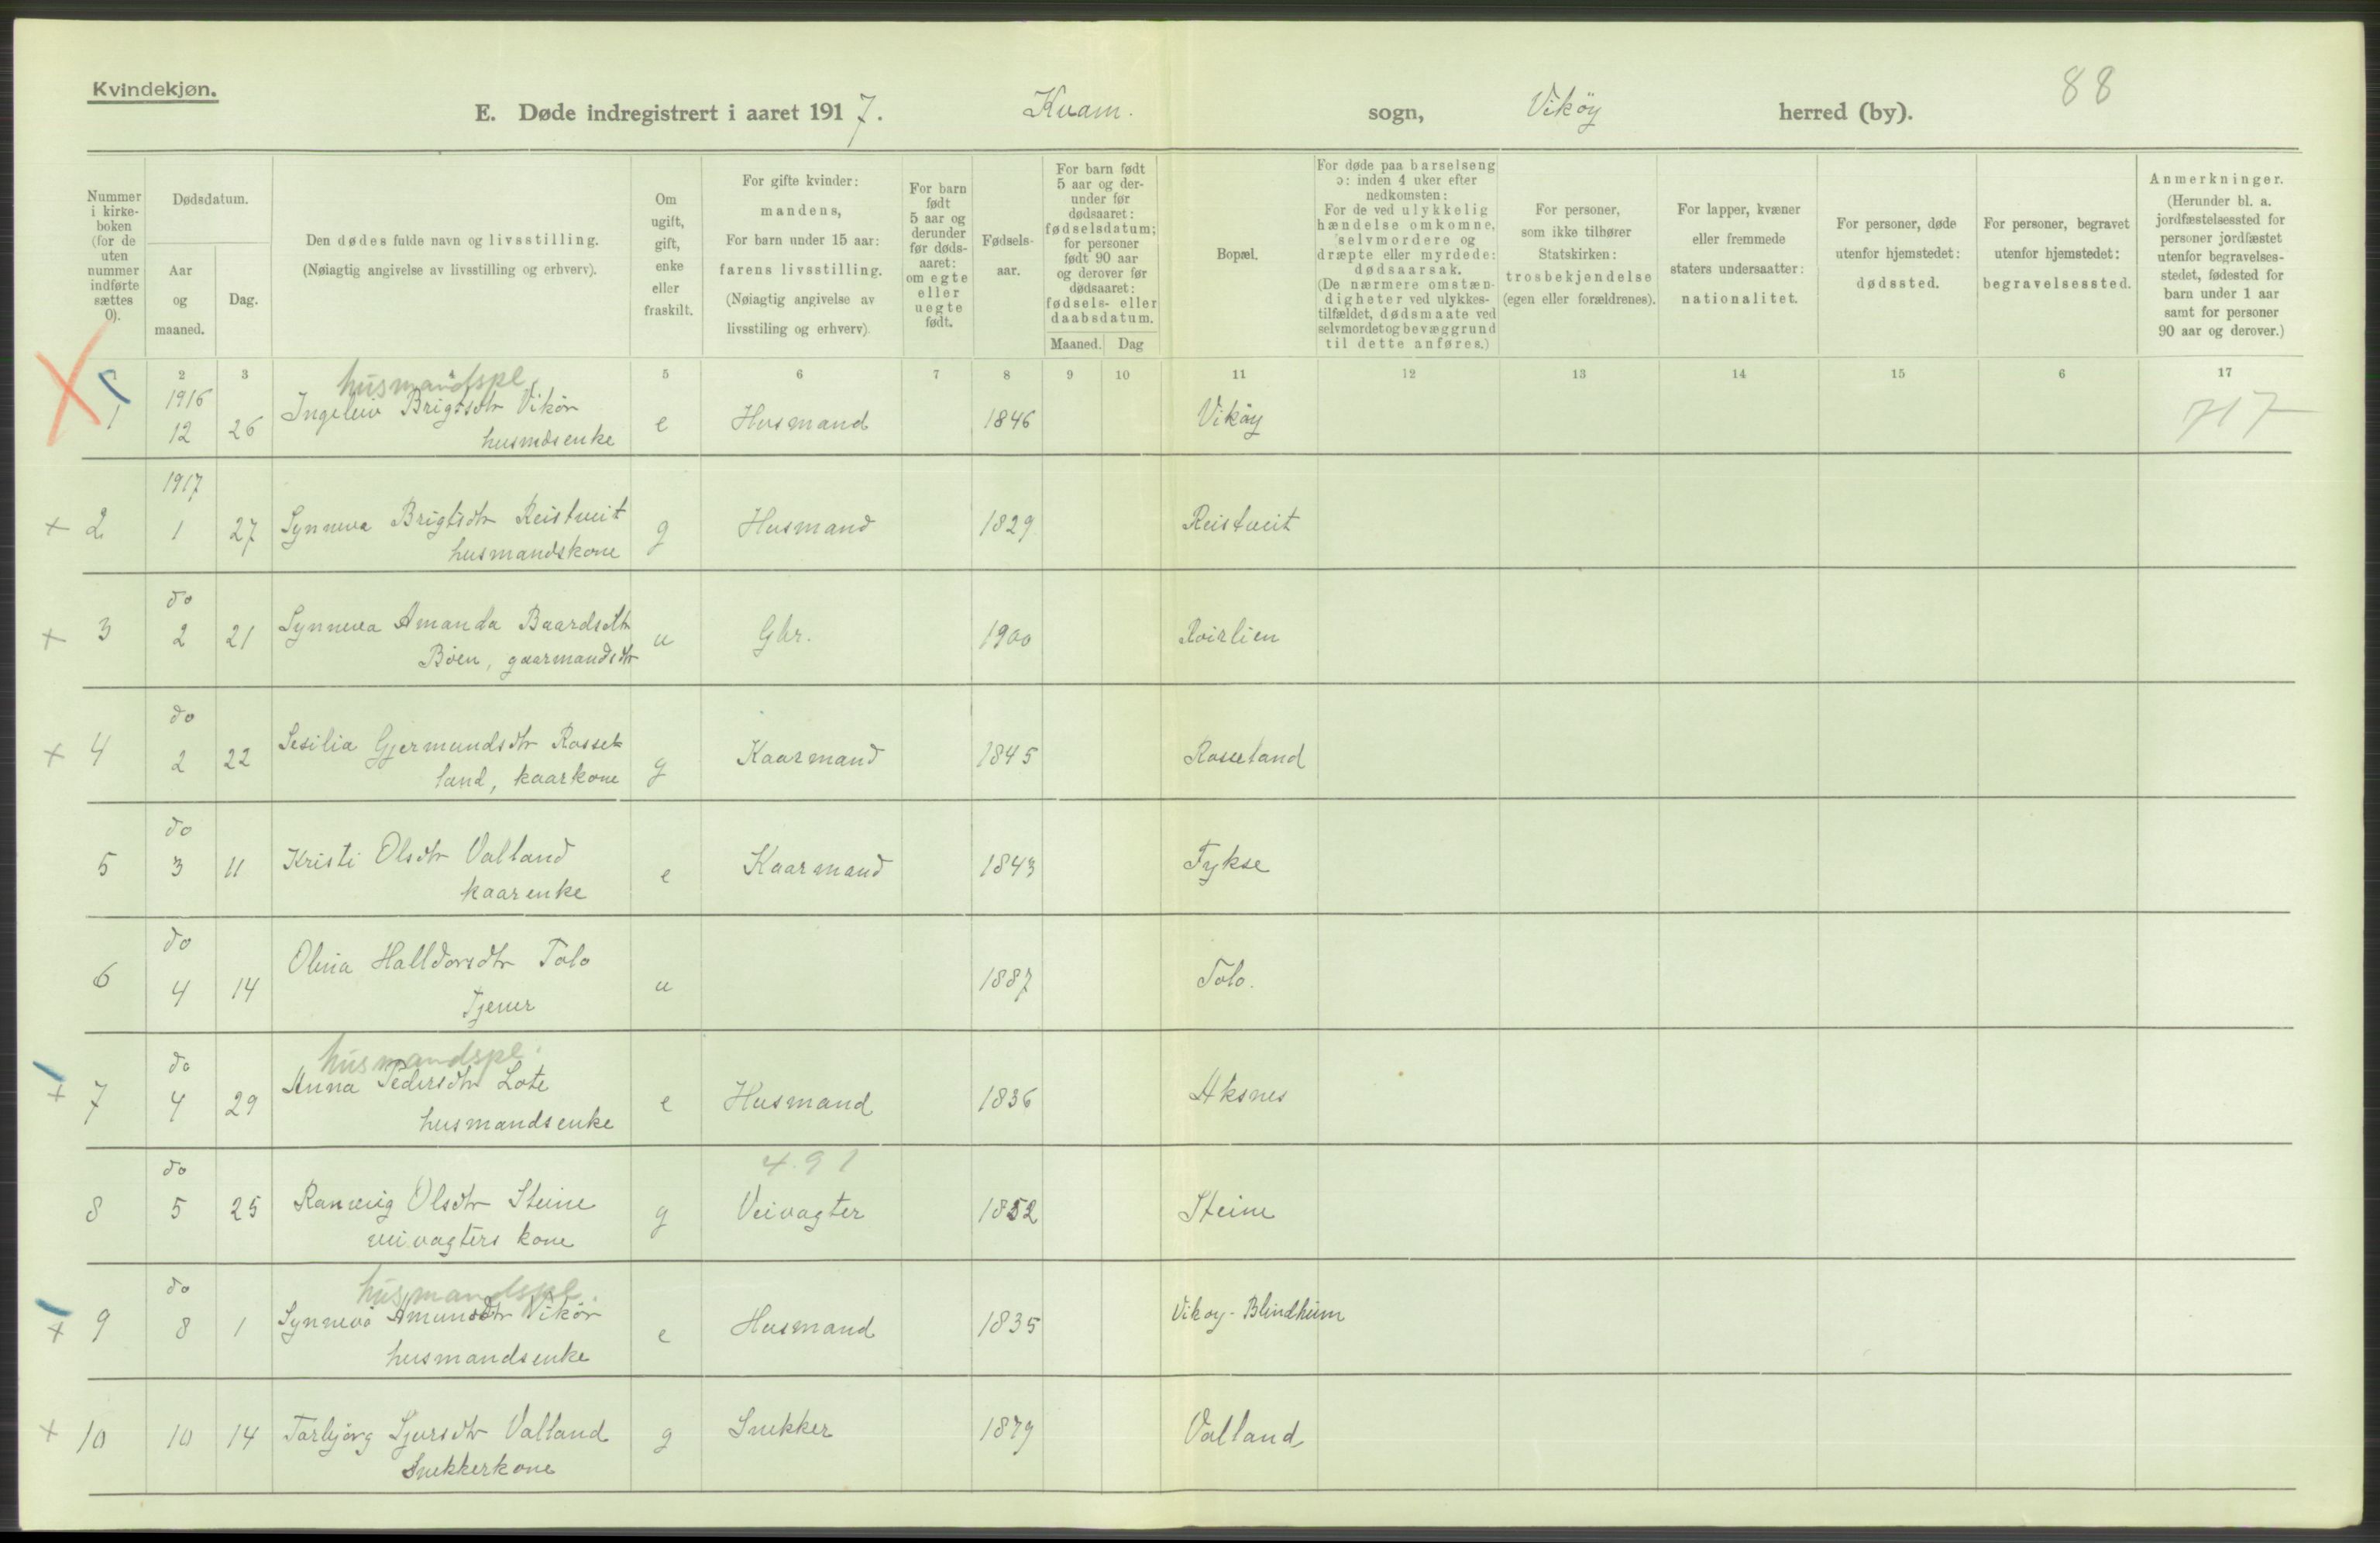 Kvindekjøn.
E. Døde indregistrert i aaret 1917. Kvam. sogn, Vikøy herred (by). 88
Nummer i kirke-boken (for de uten nummer indførte sættes 0).
Dødsdatum.
Aar og maaned.
Dag.
Den dødes fulde navn og livsstilling.
(Nøiagtig angivelse av livsstilling og erhverv).
Om ugift, gift, enke eller fraskilt.
For gifte kvinder: mandens,
For barn under 15 aar: farens livsstilling.
(Nøiagtig angivelse av livsstiling og erhverv)
For barn født 5 aar og derunder før døds-aaret: om egte eller uegte født.
Fødsels-aar.
For barn født 5 aar og der-under før dødsaaret: fødselsdatum; for personer født 90 aar og derover før dødsaaret: fødsels- eller daabsdatum.
Maaned. Dag
Bopæl.
For døde paa barselseng ɔ: inden 4 uker efter nedkomsten:
For de ved ulykkelig hændelse omkomne, selvmordere og dræpte eller myrdede: dødsaarsak.
(De nærmere omstæn-digheter ved ulykkes-tilfældet, dødsmaate ved selvmordet og bevæggrund til dette anføres.)
For personer, som ikke tilhører Statskirken: trosbekjendelse (egen eller forældrenes).
For lapper, kvæner eller fremmede staters undersaatter: nationalitet.
For personer, døde utenfor hjemstedet: dødssted.
For personer, begravet utenfor hjemstedet: begravelsessted.
Anmerkninger.
(Herunder bl. a. jordfæstelsessted for personer jordfæstet utenfor begravelses-stedet, fødested for barn under 1 aar samt for personer 90 aar og derover.)
2 3 5 6 7 8 9 10 11 12 13 14 15 6 17
husmandspl.
1916
1 12 26 Ingeleiv Brigtsdtr Vikör e Husmand 1846 Viköy 717
husmdsenke
1917
+ 2 1 27 Synneva Brigtsdtr Reistveit g Husmand 1829 Reistveit
husmandskone
do
+ 3 2 21 Synneva Amanda Baardsdtr u Gbr. 1900
Böen, gaarmandsdtr
do
+ 4 2 22 Sesilia Gjermundsdtr Rosse- g Kaarmand 1845 Rosseland
land, kaarkone
do
5 3 11 Kristi Olsdtr Valland e Kaarmand 1843 Fykse
kaarenke
do
6 4 14 Halldorsdtr Tolo u 1887 Tolo.
Tjener
husmandspl.
do
+ 7 4 29 Anna Pedersdtr Lote e Husmand 1836 Aksnes
husmandsenke
do 4.91
8 5 25 Ranveig Olsdtr Steine g Veivagter 1852 Steine
veivagters kone
do husmandspl.
+ 9 8 1 Synneva Amundsdtr Vikör e Husmand 1835 Vikoy - Blindheim
husmandsenke
+ 10 10 14 Torbjörg Sjursdtr Valland g Snekker 1879 Valland
Snekkerkone